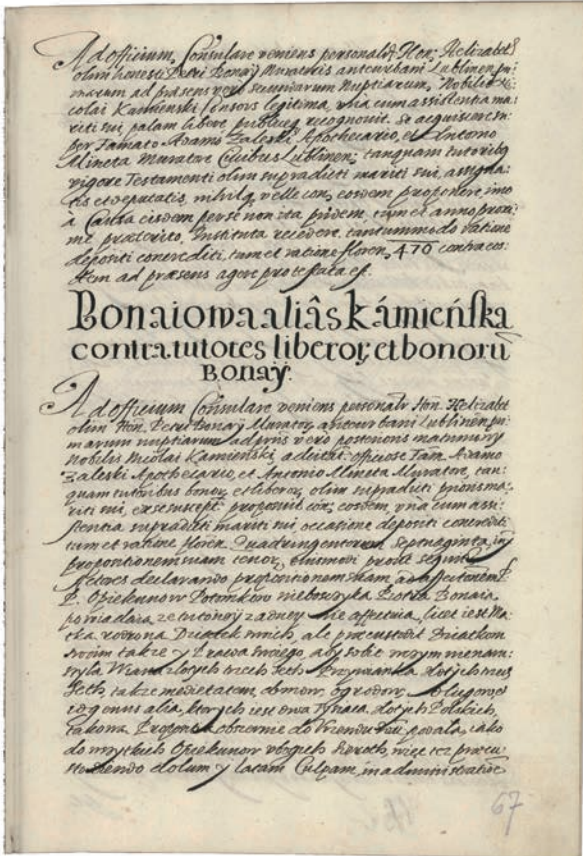 Ad officium Consulare veniens personalr Hon: Helizabet
olim honesti Petri Bonaÿ Muratoris anteurbani Lublinen pri
marum ad præsens vero secundarum Nuptiarum, Nobilis Ni
colai Kamienski Consors legitima, vna cum assistentia ma
riti sui, palam libere publiceq recognouit. Se acquiescere su
per famato Adamo Zaleski Apothecario, et Antonio
Mineta Muratore Ciuibus Lublinen: tanquam tutoribus
vigore Testamenti olim supradicti mariti sui, assigna
tis et deputatis, nihilq velle con, eosdem proponere, imo
à Causa eisdem per se non ita pridem, tum et anno proxi
me præterito, Instituta recedere, tantummodo ratione
depositi concrediti, tum et ratione floren, 470 contra eos
dem ad præsens agere protestata est.
Bonaiowa aliâs Kámieńska
contra tutores liberor, et bonorū
Bonaÿ.
Ad officium Consulare veniens personalr Hon. Helizabet
olim Hon. Petri Bonaÿ Murator, anteurbani Lublinen pri
marum nuptiarum, ad præs vero posterioris matrimonÿ
Nobilis Nicolai Kamienski, ad citat: officiose Fam. Adamo
Zaleski Apothecario, et Antonio Mineta Muratore, tan
quam tutoribus bonor, et liberor, olim supradicti prioris ma
riti sui, ex se suscept: proposuit cor, eosdem, vna cum assi
stentia supradicti mariti sui occasione depositi concrediti
tum et ratione floren. Quadringentorum Septuaginta, in
propositionem suam tenor, eiusmodi prout sequitur
Actores declarando propositionem suam
P. Opiekunow Potomkow nieboszczyka Piotra Bonaia,
powiadaią, ze tutoriÿ zadneÿ nie affectuia, licet iest Ma
tka rodzona Dziatek swich, ale præcustodit Dziatkom
swoim takze y Prawa swego, aby sobie
Wiana zlotych trzech seth Przywianku zlotych trzech
seth, takze medietatem, domow, ogrodow,
id genus alia, ktorych iest dwa Tysiaca, zlotych Polskich,
takowa Proposita obszernie do Vrzendu podala, iako
do wszytkich Opiekunow vbogich Sieroth, wiec tez præcu
stodiendo dolum y latam Culpam, in administratione
67